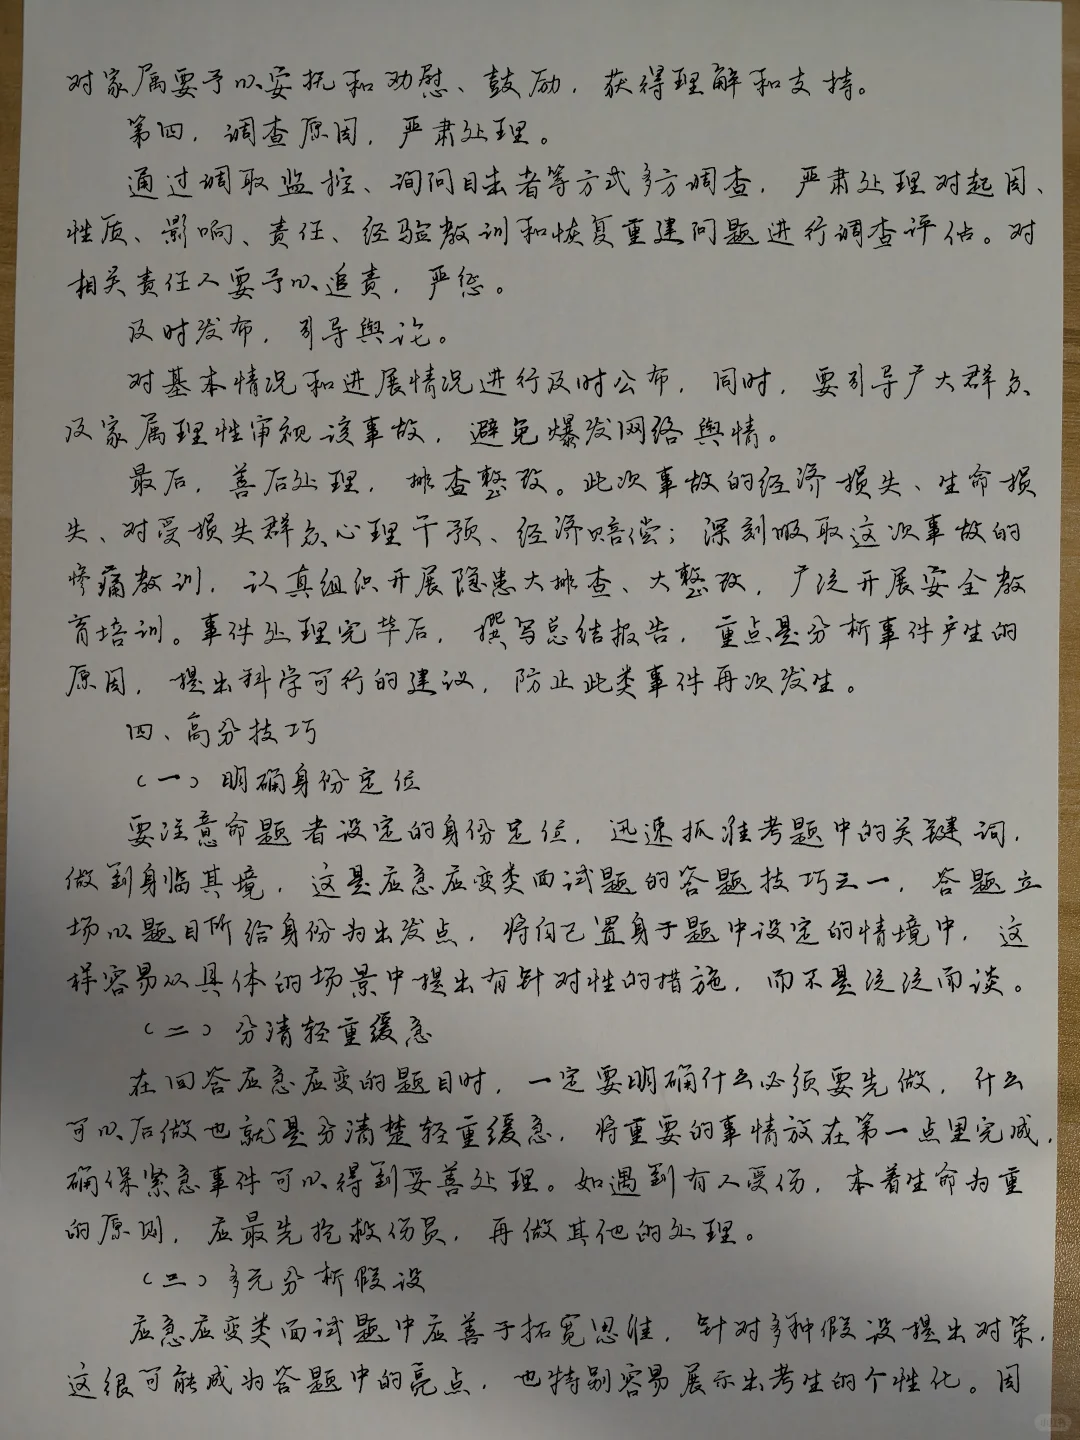 对家属要予以安抚和劝慰、鼓励，获得理解和支持。
第四，调查原因，严肃处理。
通过调取监控、询问目击者等方式多方调查，严肃处理对起因、
性质、影响、责任、经验教训和恢复重建问题进行调查评估。对
相关责任人要予以追责，严惩。
及时发布，引导舆论。
对基本情况和进展情况进行及时公布，同时，要引导广大群众
及家属理性审视该事故，避免爆发网络舆情。
最后，善后处理，排查整改。此次事故的经济损失、生命损
失、对受损失群众心理干预、经济赔偿；深刻吸取这次事故的
惨痛教训，认真组织开展隐患大排查、大整改，广泛开展安全教
育培训。事件处理完毕后，撰写总结报告，重点是分析事件产生的
原因，提出科学可行的建议，防止此类事件再次发生。
四、高分技巧
（一）明确身份定位
要注意命题者设定的身份定位，迅速抓准考题中的关键词，
做到身临其境，这是应急应变类面试题的答题技巧之一，答题立
场以题目所给身份为出发点，将自己置身于题中设定的情境中，这
样容易从具体的场景中提出有针对性的措施，而不是泛泛而谈。
（二）分清轻重缓急
在回答应急应变的题目时，一定要明确什么必须要先做，什么
可以后做也就是分清楚轻重缓急，将重要的事情放在第一点里完成，
确保紧急事件可以得到妥善处理。如遇到有人受伤，本着生命为重
的原则，应最先抢救伤员，再做其他的处理。
（三）多元分析假设
应急应变类面试题中应善于拓宽思维，针对多种假设提出对策，
这很可能成为答题中的亮点，也特别容易展示出考生的个性化。因
小红书